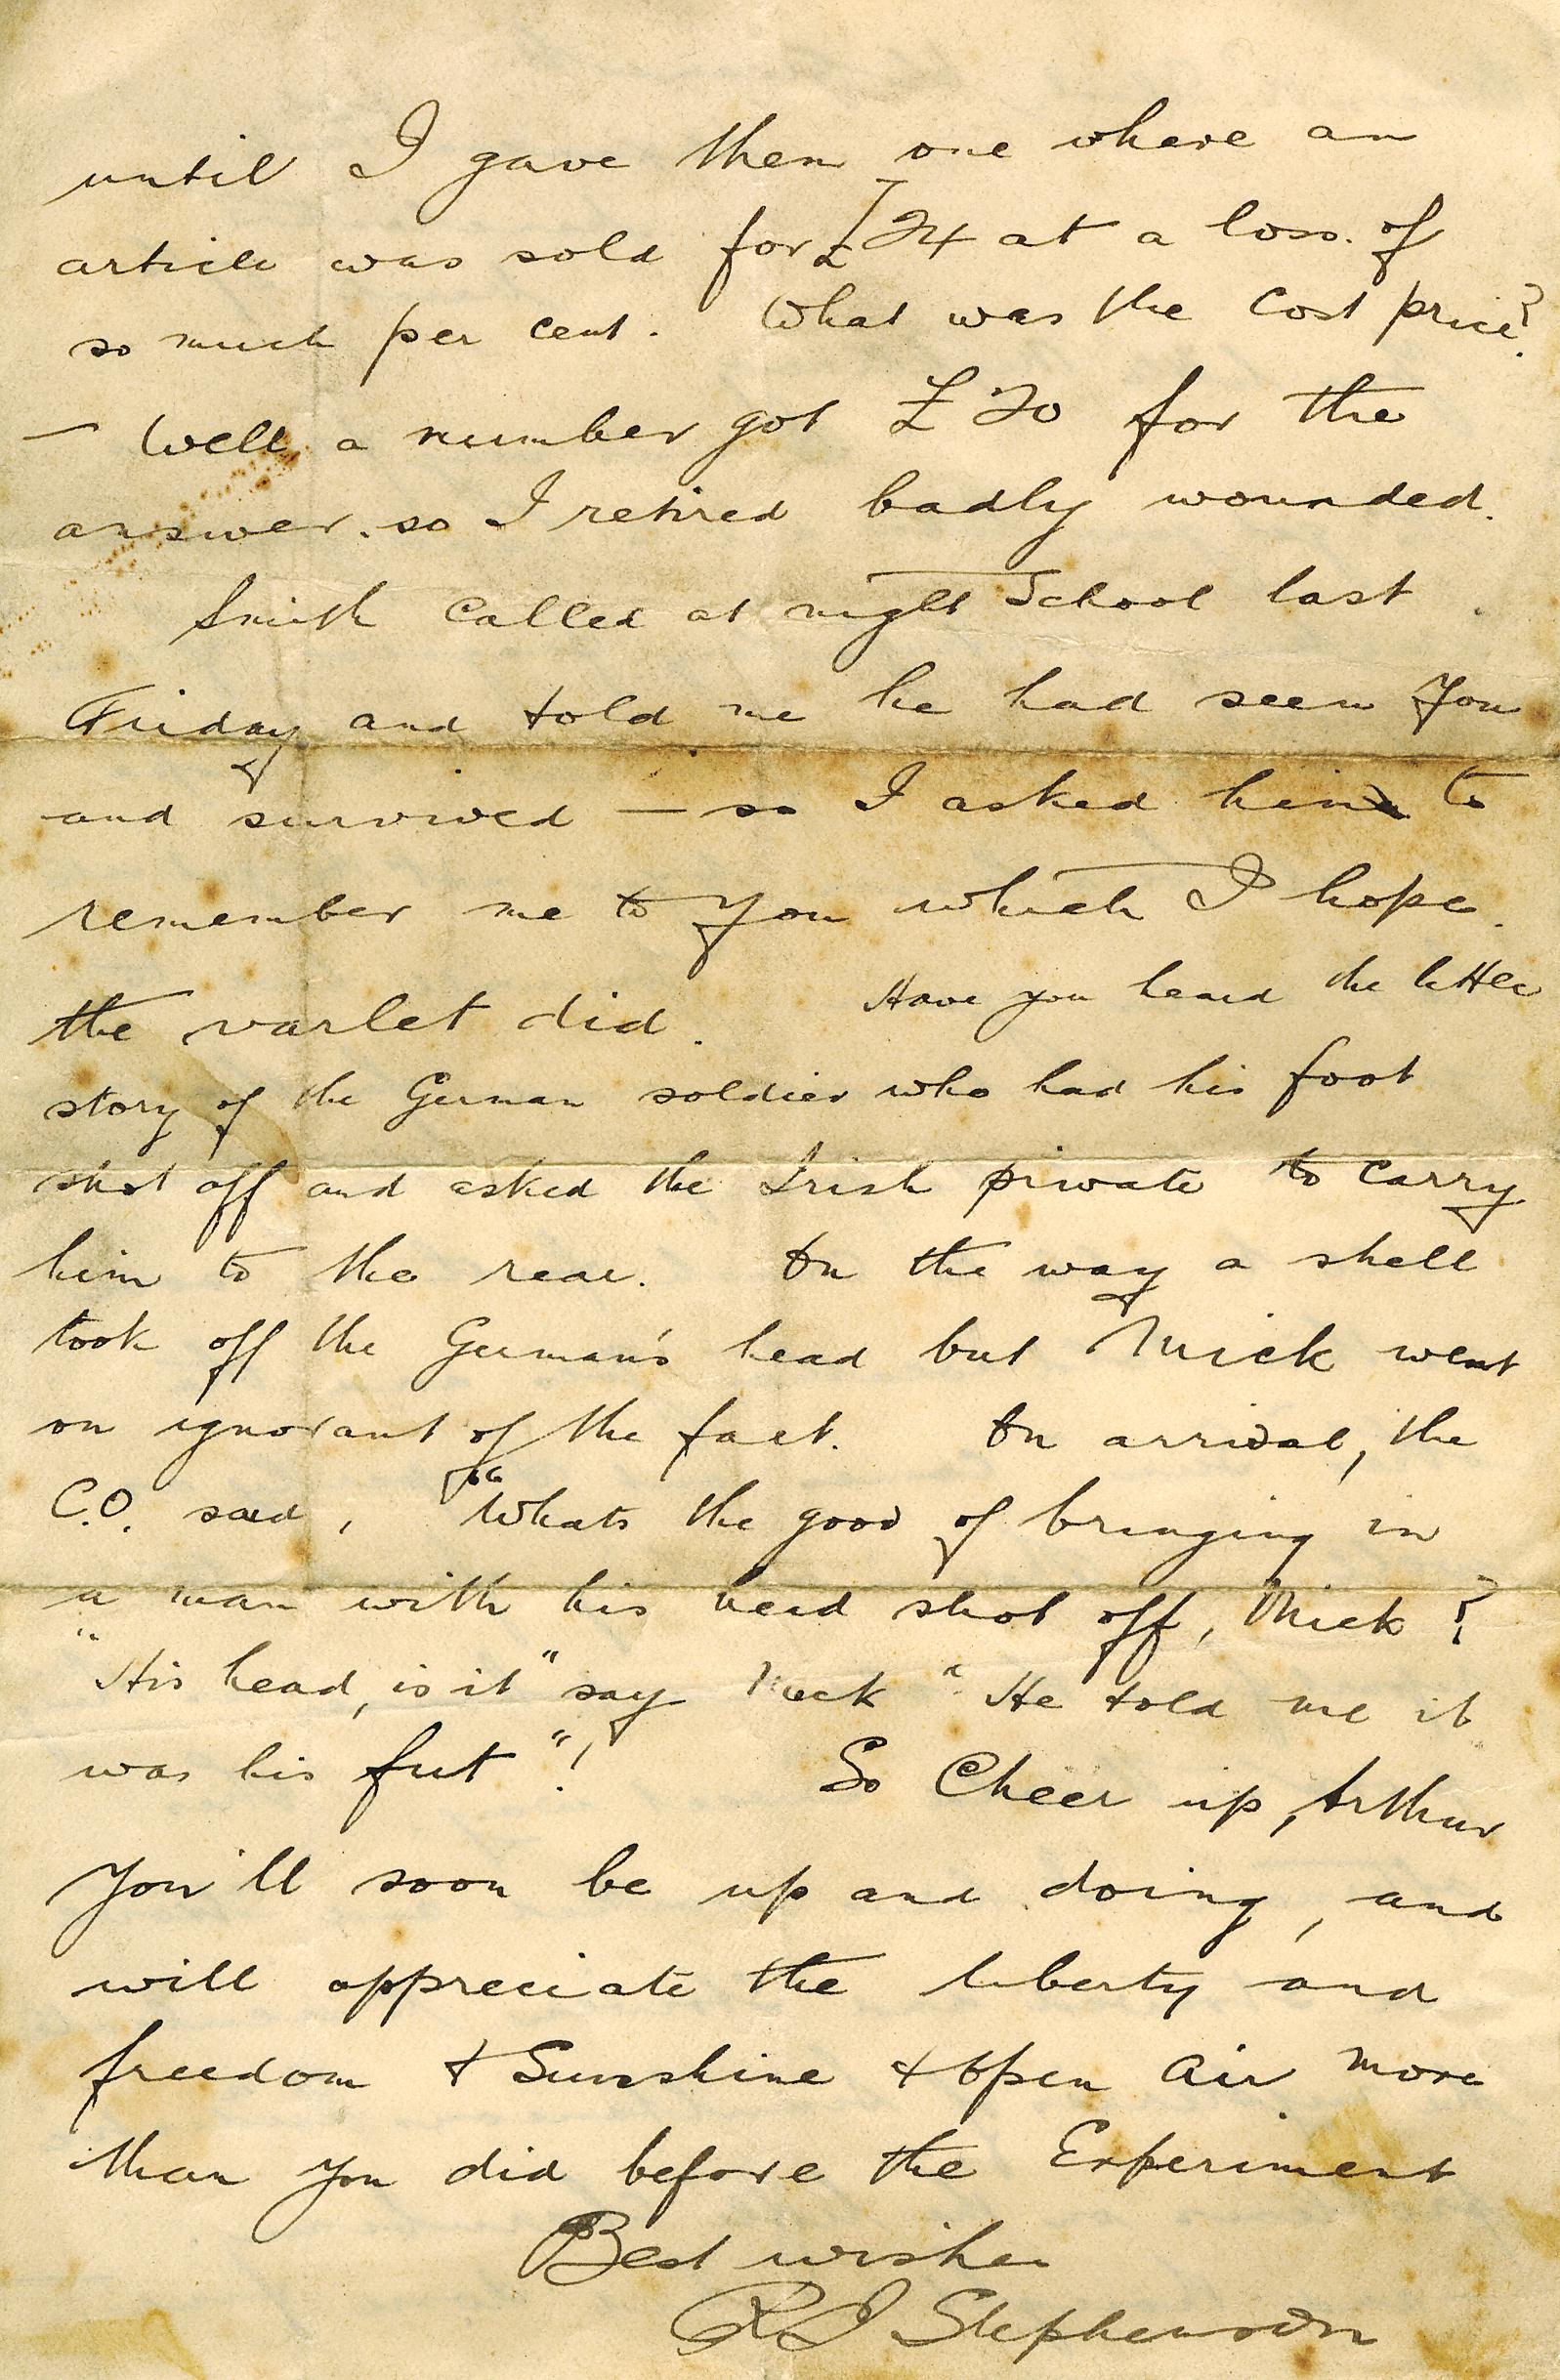 until I gave them one where an
article was sold for £24 at a loss of
so much per cent. What was the Cost price?
— Well, a number got £20 for the
answer. so I retired badly wounded.
Smith called at night School last
Friday and told me he had seen you
and survived — so I asked him to
remember me to you which I hope
the varlet did. Have you heard the little
story of the German soldier who had his foot
shot off and asked the Irish private to carry
him to the rear. On the way a shell
took off the German's head but Mick went
on ignorant of the fact. On arrival, the
C.O. said, "Whats the good of bringing in
a man with his head shot off, Mick?
"His head, is it" say Mick "He told me it
was his fut"! So Cheer up, Arthur
You'll soon be up and doing, and
will appreciate the liberty and
freedom & Sunshine & open air more
than you did before the Experiment
Best wishes
R J Stephenson